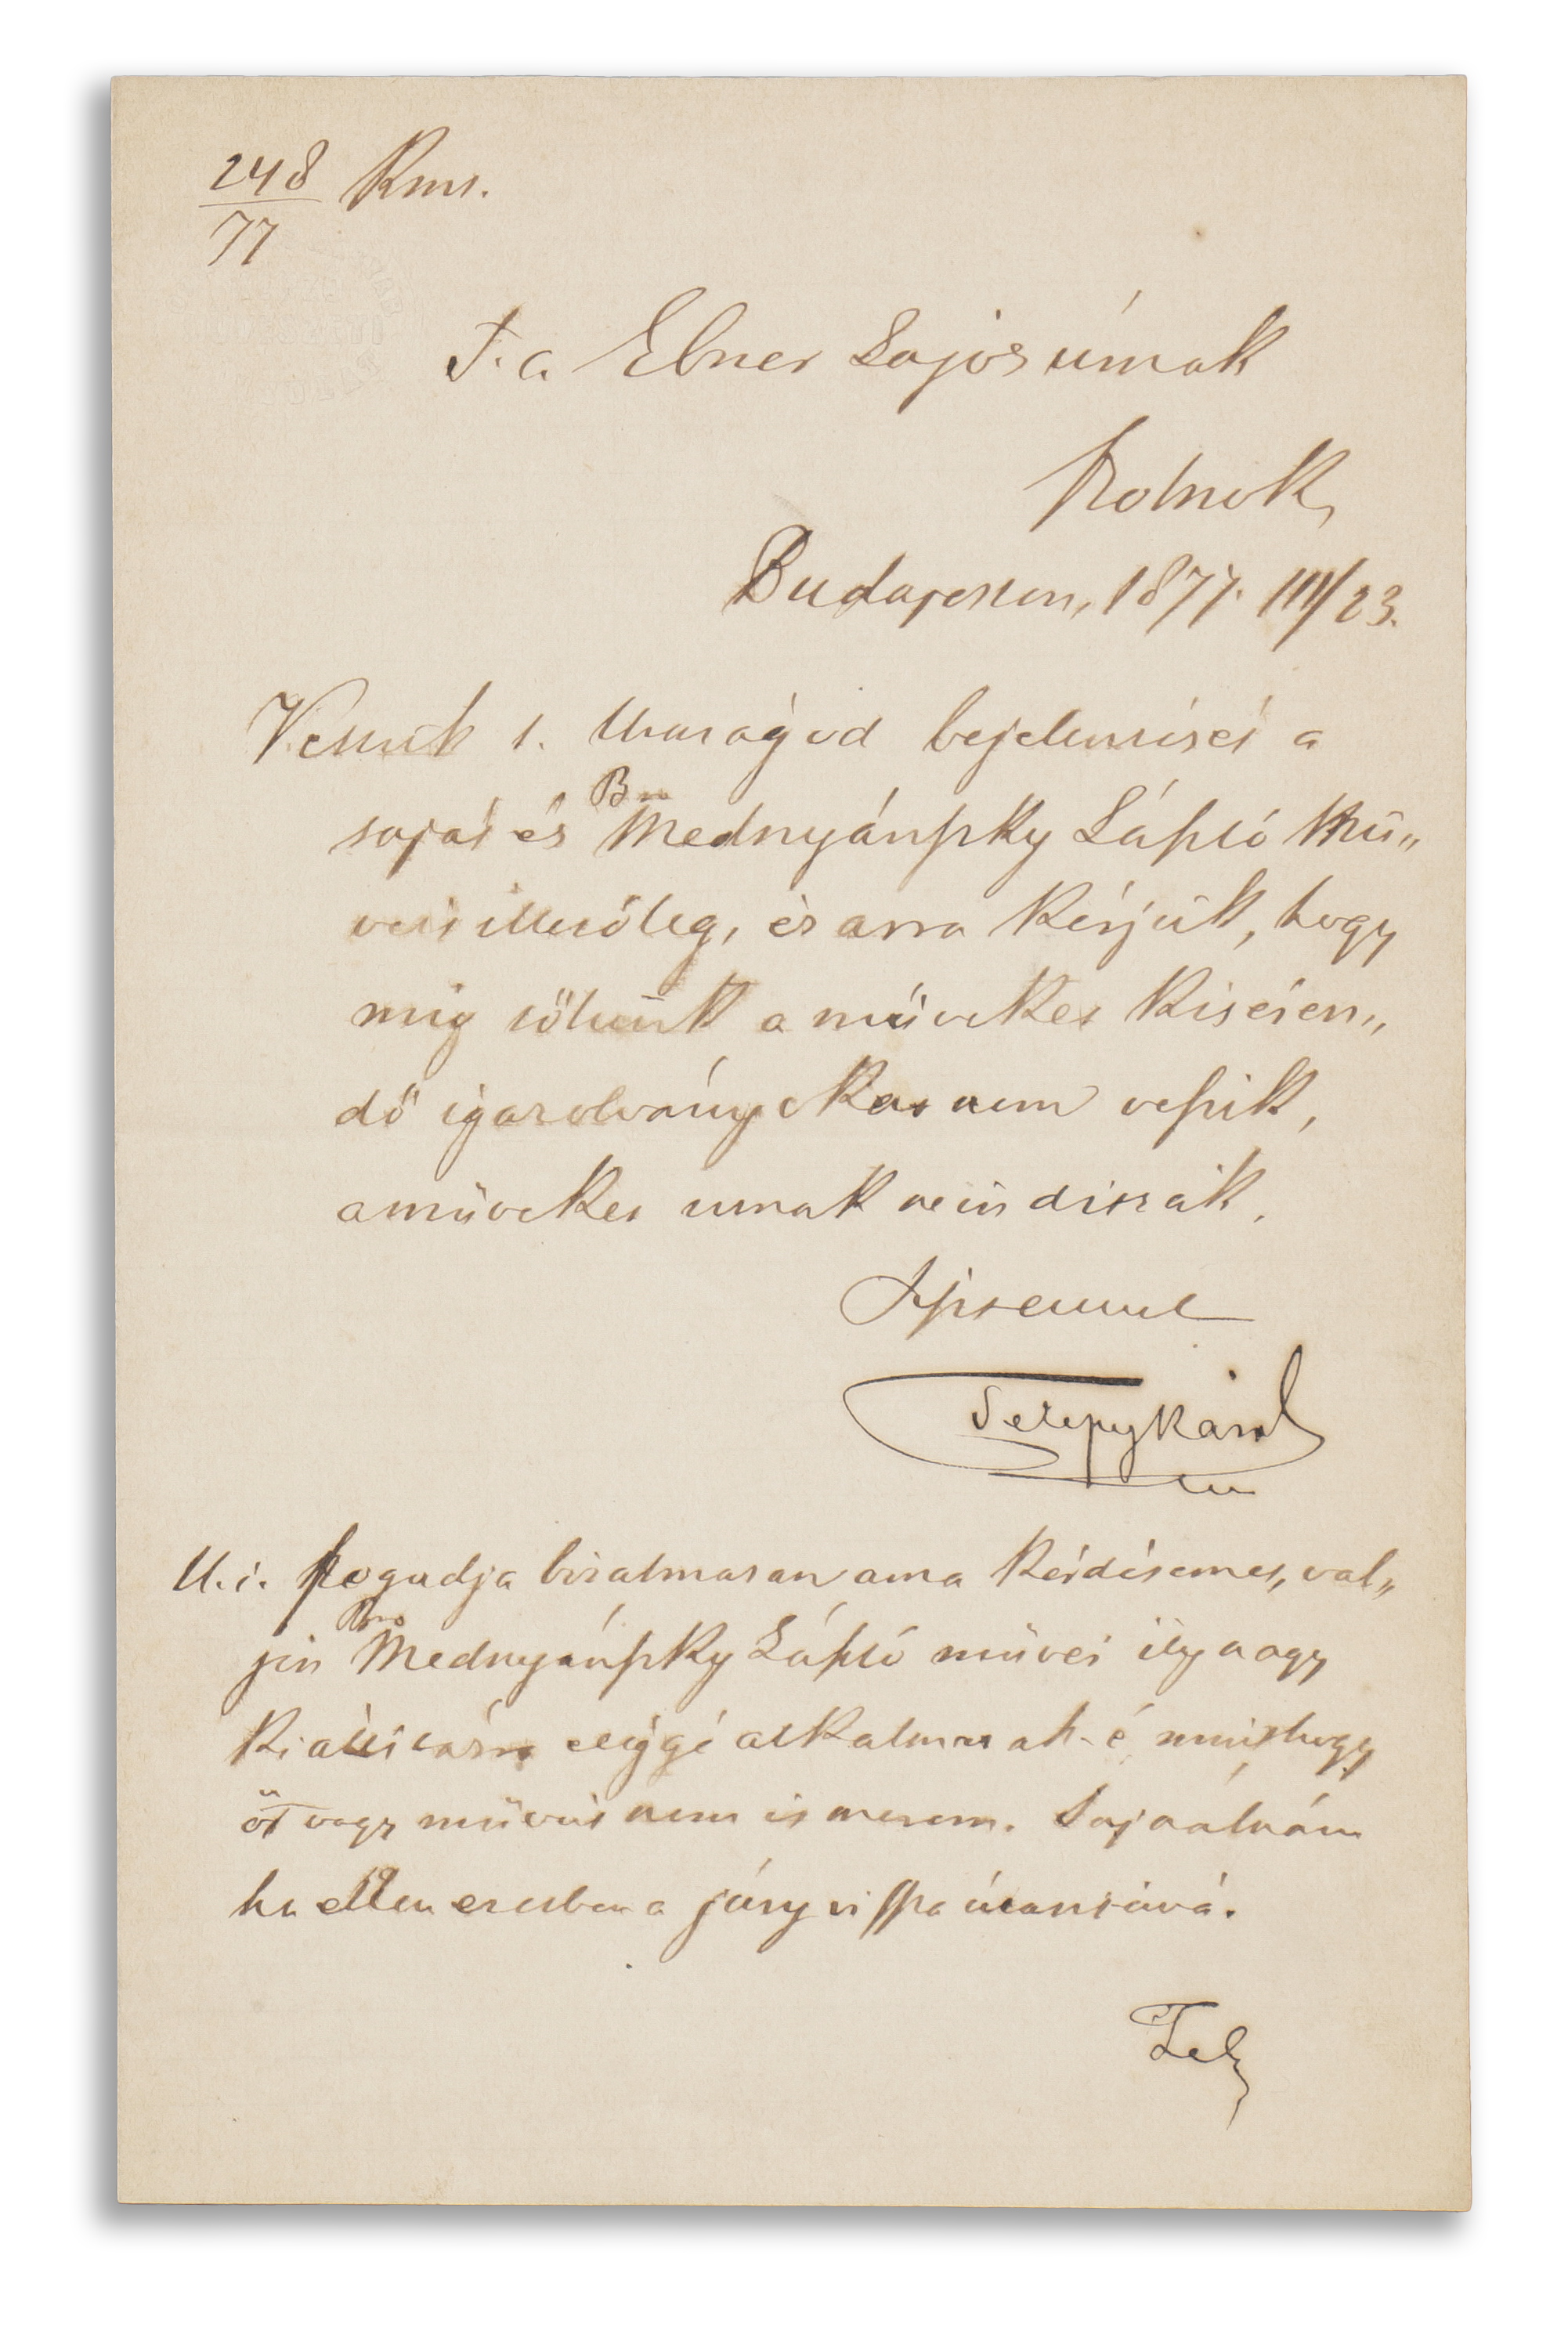 248/77 Kmt.
T. cz. Ebner Lajos úrnak
Szolnok,
Budapesten, 1877. III/23.
Vettük t. Uraságod bejelentését a
saját és Bn Mednyánszky László mű„
veit illetőleg, és arra kérjük, hogy
míg tőlünk a műveket kisérien„
dő igazolványokat nem veszik,
a műveket utnak ne inditsák.
Tisztelettel
Telepy Károly
U.i. fogadja bizalmasan ama kérdésemet, val„
jon Bro Mednyánszky László művei ily nagy
kiállításra eléggé alkalmasak-é minthogy
őt vagy műveit nem ismerem. Sajnálnám
ha ellen esetben a juryvissza útasítaná.
Tely